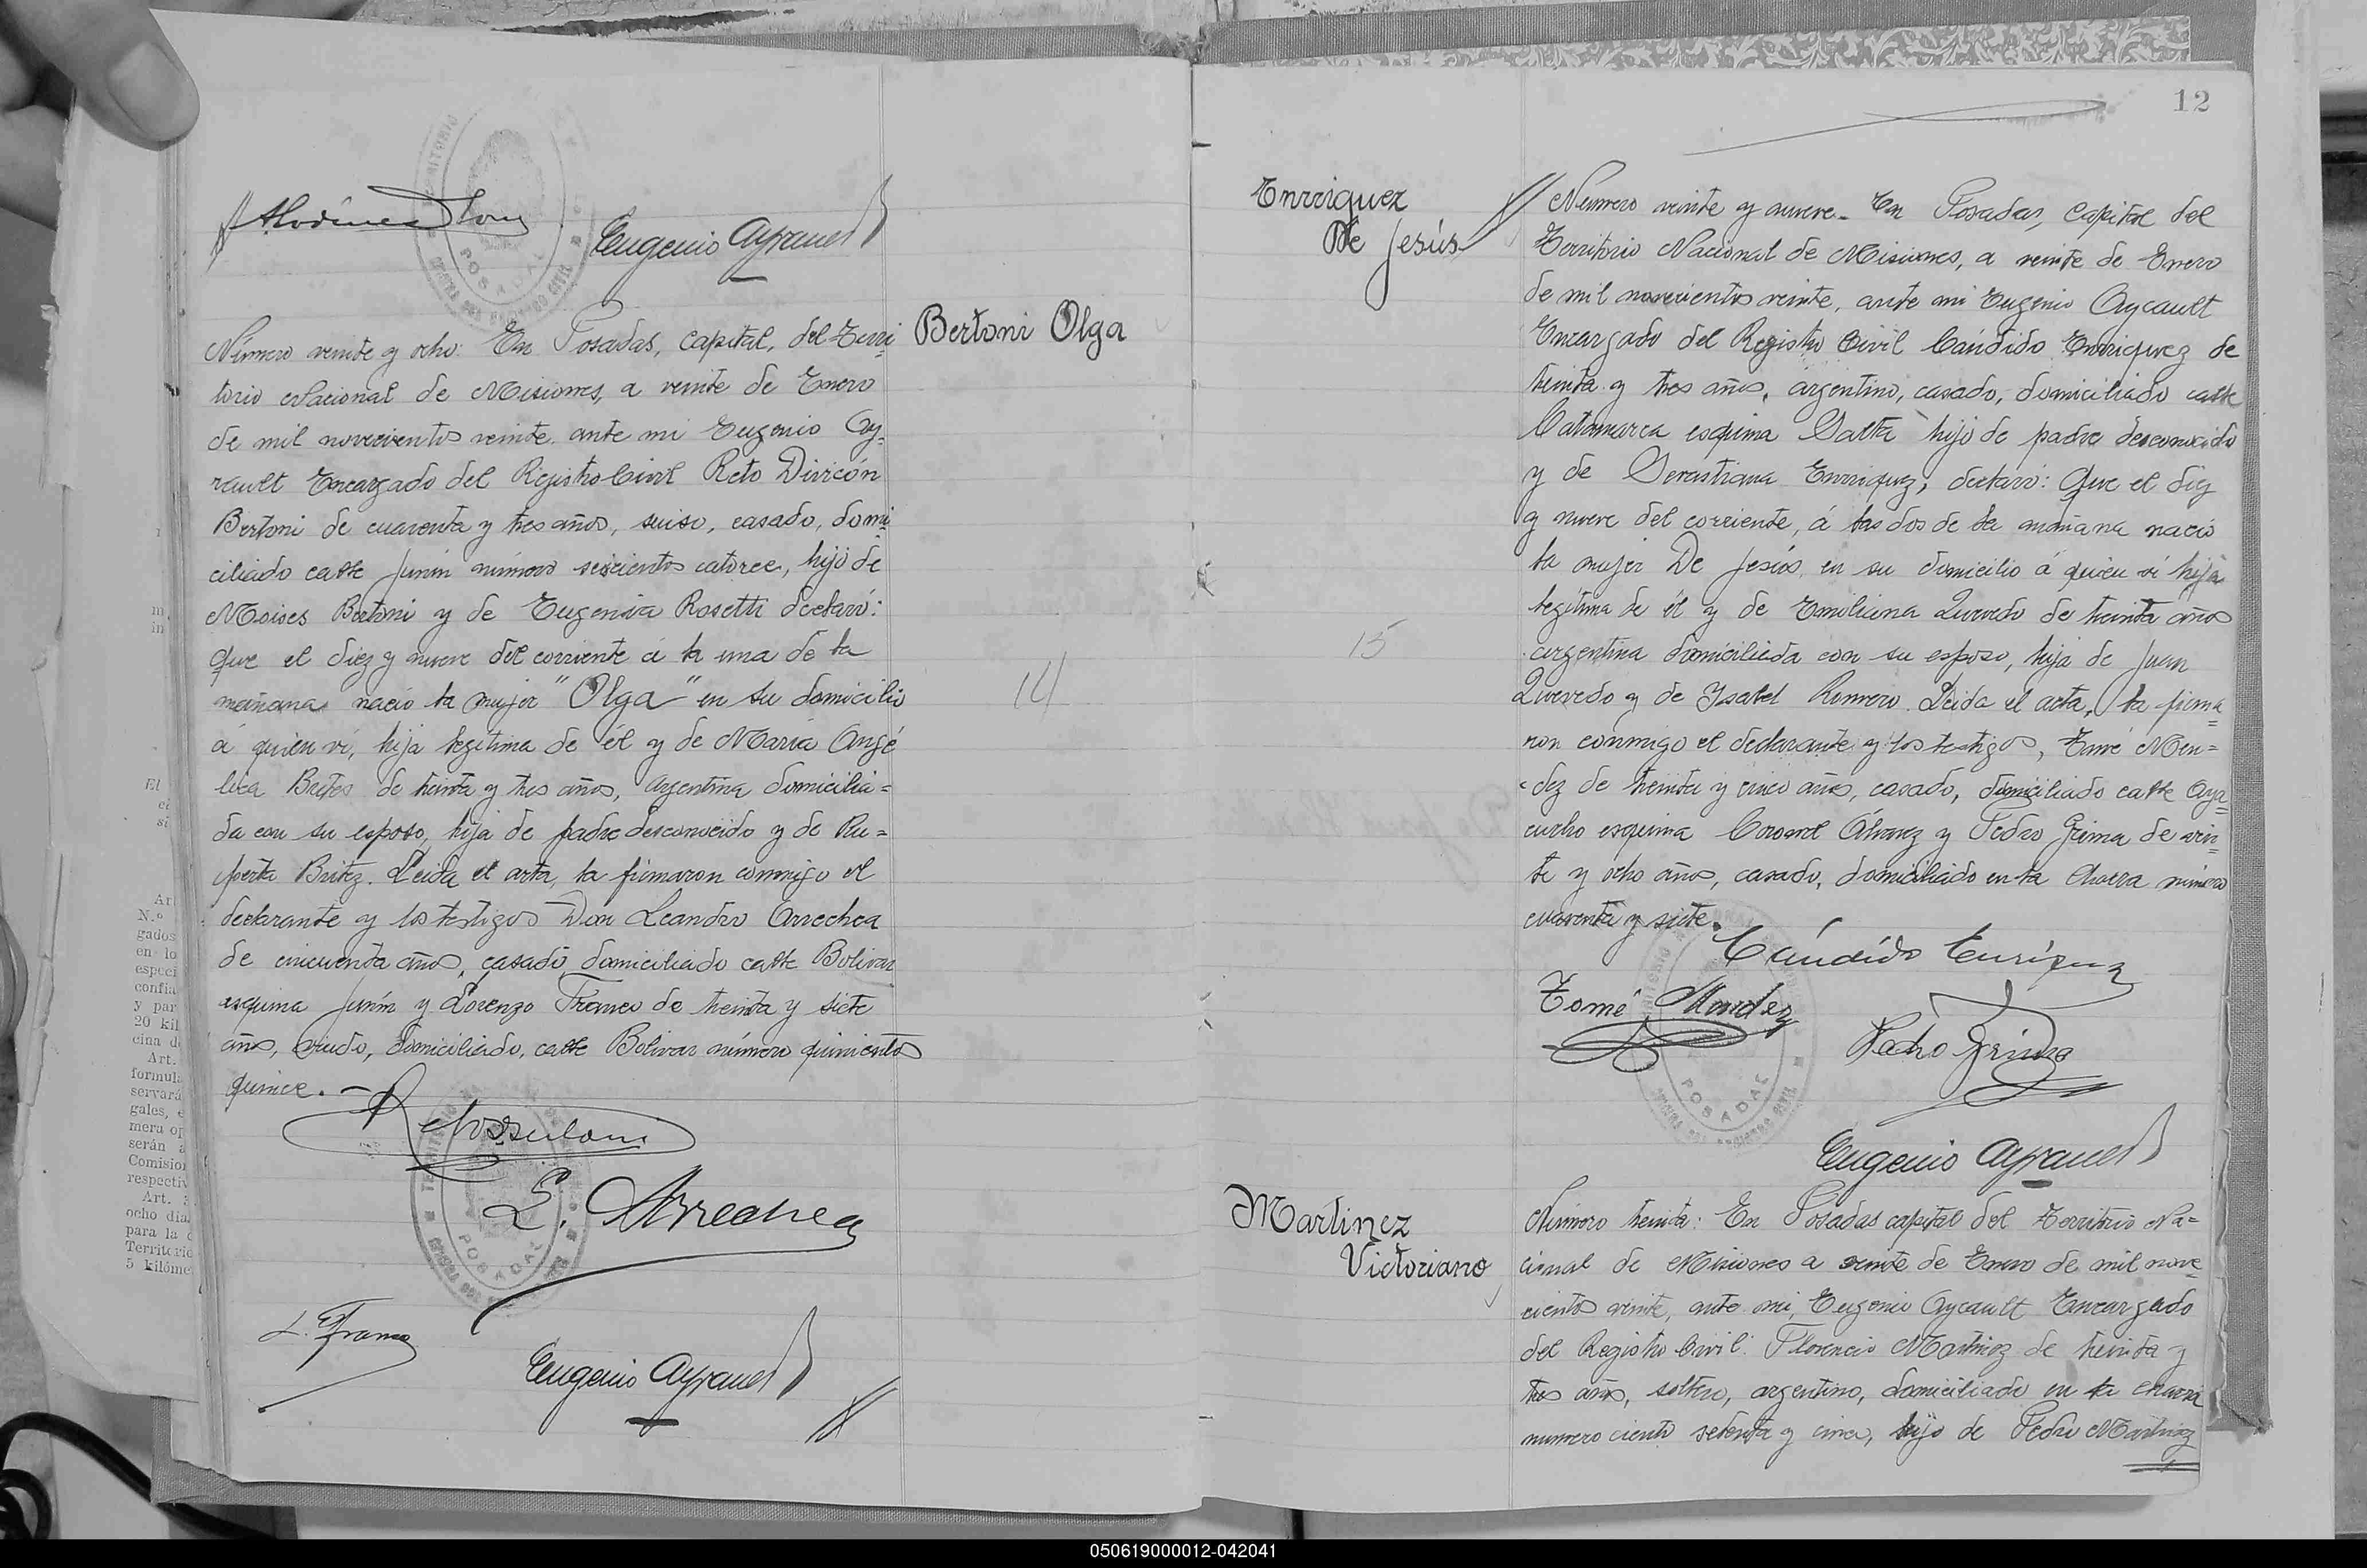 Eugenio Ayrault
Número veinte y ocho: En Posadas, Capital, del Terri
torio Nacional de Misiones, a veinte de Enero
de mil novecientos veinte ante mi Eugenio Ay-
rault Encargado del Registro Civil Reto Divicón
Bertoni de cuarenta y tres años, suiso, casado, domi
ciliado calle Junín número seiscientos catorce, hijo de
Moises Bertoni y de Eugenia Rosetti declaró:
que el diez y nueve del corriente á la una de la
mañana nació la mujer "Olga" en su domicilio
á quien ví, hija legítima de él y de María Angé
lica de treinta y tres años, argentina domicilia=
da con su esposo, hija de padre desconocido y de Ru=
perta Britez. Leida el acta, la firmaron conmigo el
declarante y los testigos Don Leandro Arrechea
de cincuenta años, casado, domiciliado calle Bolivar
esquina Junín y Lorenzo Franco de treinta y siete
años, viudo, domiciliado, calle Bolivar número quinientos
quince.
L. Arrechea
L. Franco
Eugenio Ayrault
Bertoni Olga
14
12
Enrriquez
De Jesús
15
Número veinte y nueve. En Posadas, Capital del
Territorio Nacional de Misiones, a veinte de Enero
de mil novecientos veinte, ante mi Eugenio Ayrault
Encargado del Registro Civil Cándido Enrriquez de
treinta y tres años, argentino, casado, domiciliado calle
Catamarca esquina Salta hijo de padre desconocido
y de Enrriquez, declaró: Que el diez
y nueve del corriente, á las dos de la mañana nació
la mujer De Jesús en su domicilio á quien ví hija
legítima de él y de Emiliana Quevedo de treinta años
argentina domiciliada con su esposo, hija de Juan
Quevedo y de Ysabel Romero. Leida el acta, la firma=
ron conmigo el declarante y los testigos, Tomé Men=
dez de treinta y cinco años, casado, domiciliado calle Aya=
cucho esquina Coronel Álvarez y Pedro Grima de vein=
te y ocho años, casado, domiciliado en la Chacra número
cuarenta y siete.
Cándido Enriquez
Tomé Mendez
Pedro Grima
Eugenio Ayrault
Martinez
Victoriano
Número treinta: En Posadas capital del Territorio Na=
cional de Misiones a veinte de Enero de mil nove
cientos veinte, ante mi, Eugenio Ayrault Encargado
del Registro Civil: Florencio Martinez de treinta y
tres años, soltero, argentino, domiciliado en la chacra
numero ciento setenta y cinco, hijo de Pedro Martinez
050619000012-042041